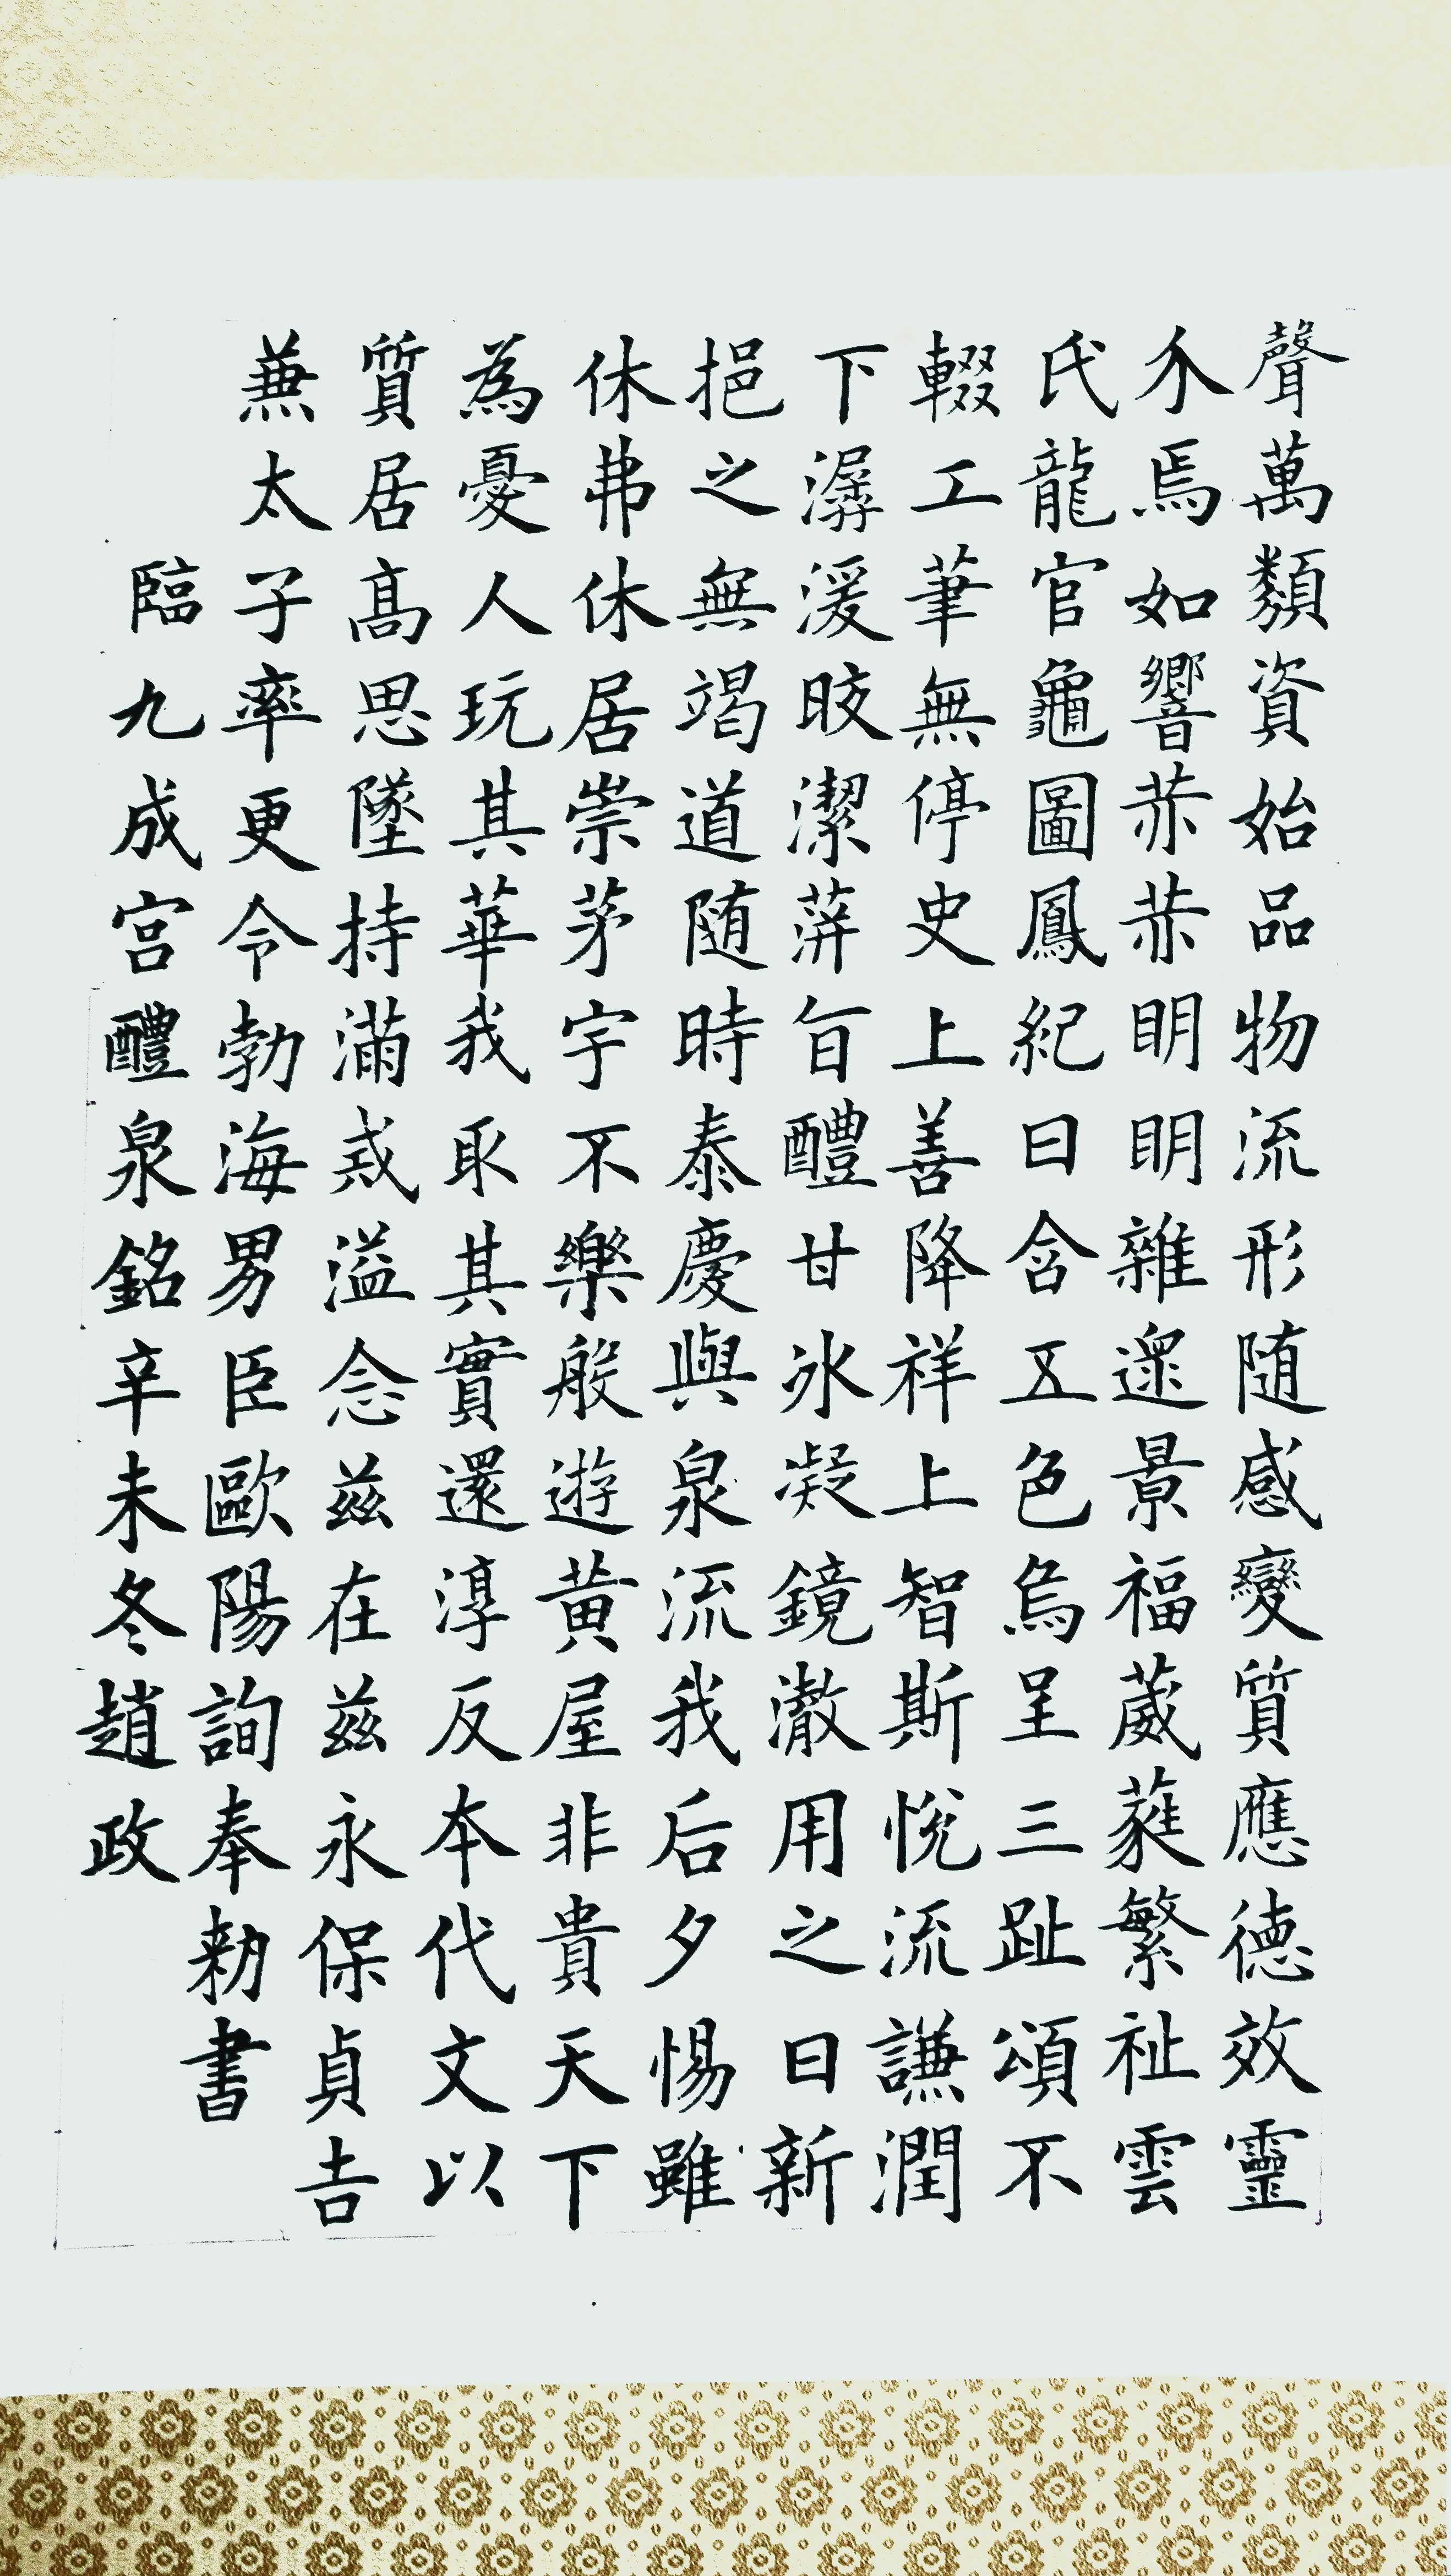 聲萬類資始品物流形随感變質應德效靈
介焉如響赫赫明明雜遝景福葳蕤繁祉雲
氏龍官龜圖鳳紀日含五色烏呈三趾頌不
輟工筆無停史上善降祥上智斯悅流謙潤
下潺湲皎潔蓱旨醴甘冰凝鏡澈用之日新
挹之無竭道随時泰慶與泉流我后夕惕雖
休弗休居崇茅宇不樂般遊黄屋非貴天下
為憂人玩其華我取其實還淳反本代文以
質居高思墜持滿戒溢念兹在兹永保貞吉
兼太子率更令勃海男臣歐陽詢奉勑書
臨九成宫醴泉銘辛未冬趙政